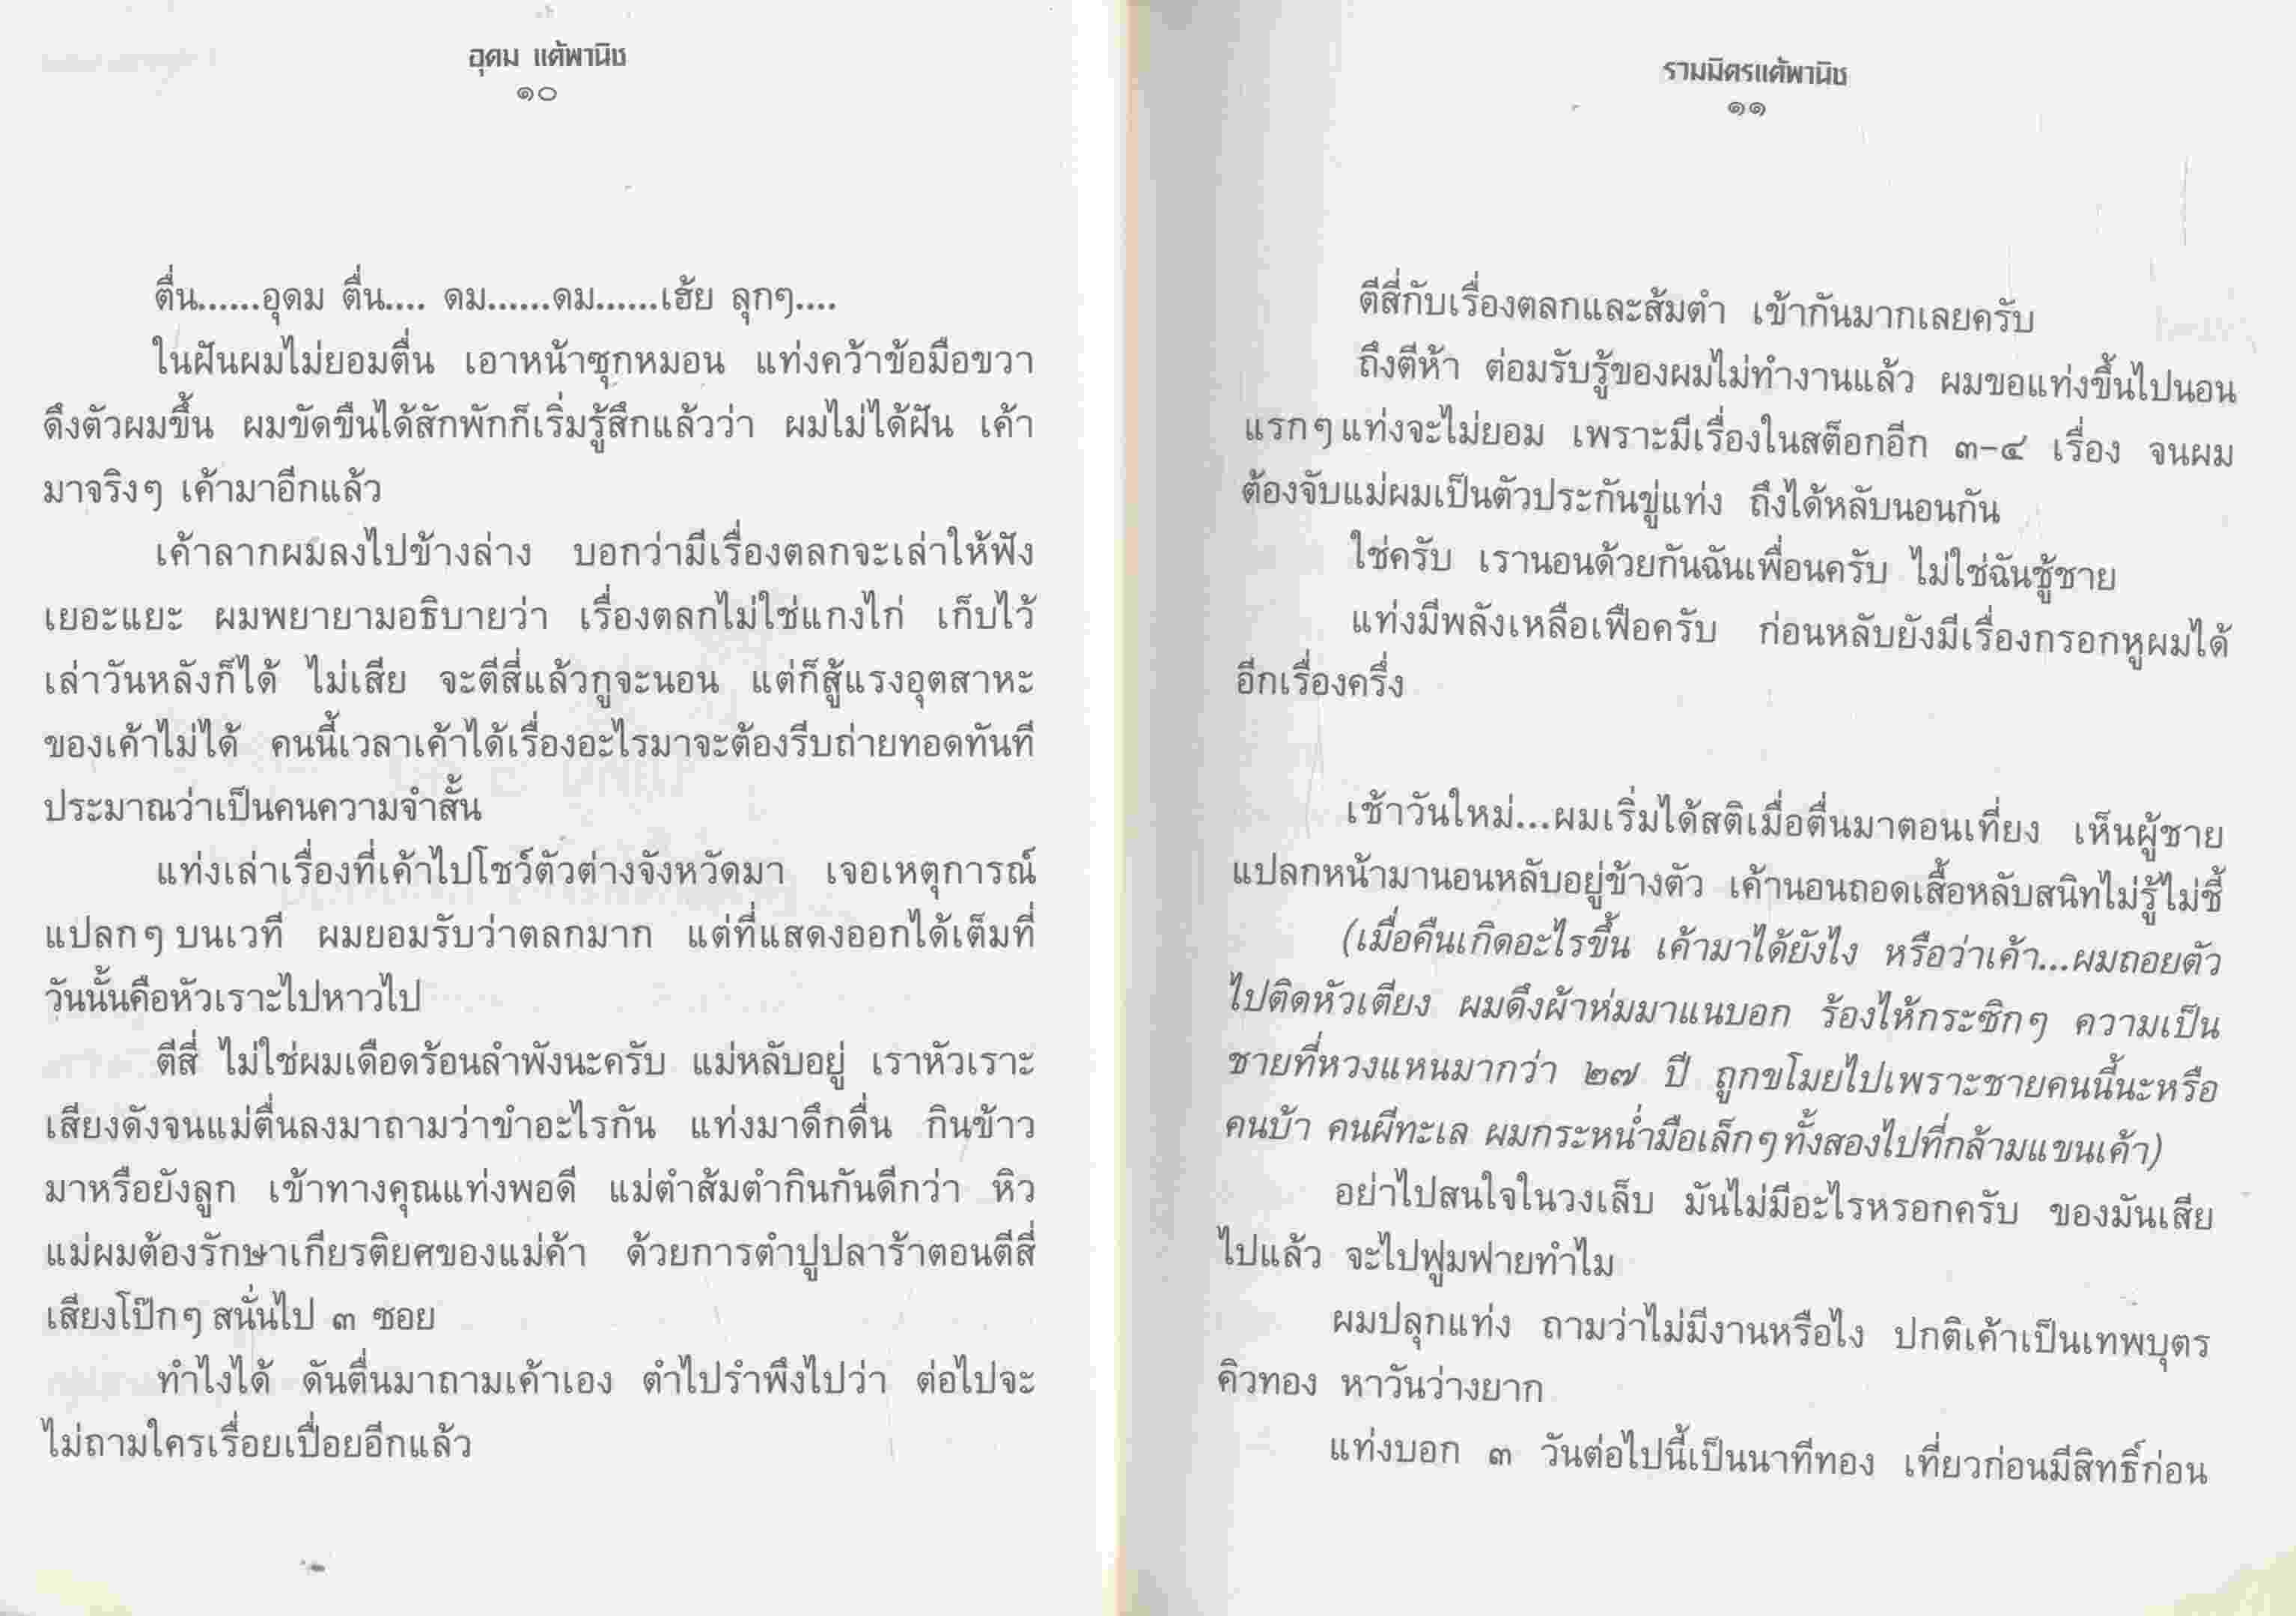 อุดม แต้พานิช
๑๐
ตื่น......อุดม ตื่น.... ดม......ดม......เฮ้ย ลุกๆ....
ในฝันผมไม่ยอมตื่น เอาหน้าซุกหมอน แท่งคว้าข้อมือขวา
ดึงตัวผมขึ้น ผมขัดขืนได้สักพักก็เริ่มรู้สึกแล้วว่า ผมไม่ได้ฝัน เค้า
มาจริงๆ เค้ามาอีกแล้ว
เค้าลากผมลงไปข้างล่าง บอกว่ามีเรื่องตลกจะเล่าให้ฟัง
เยอะแยะ ผมพยายามอธิบายว่า เรื่องตลกไม่ใช่แกงไก่ เก็บไว้
เล่าวันหลังก็ได้ ไม่เสีย จะตีสี่แล้วกูจะนอน แต่ก็สู้แรงอุตสาหะ
ของเค้าไม่ได้ คนนี้เวลาเค้าได้เรื่องอะไรมาจะต้องรีบถ่ายทอดทันที
ประมาณว่าเป็นคนความจำสั้น
แท่งเล่าเรื่องที่เค้าไปโชว์ตัวต่างจังหวัดมา เจอเหตุการณ์
แปลกๆ บนเวที ผมยอมรับว่าตลกมาก แต่ที่แสดงออกได้เต็มที่
วันนั้นคือหัวเราะไปหาวไป
ตีสี่ ไม่ใช่ผมเดือดร้อนลำพังนะครับ แม่หลับอยู่ เราหัวเราะ
เสียงดังจนแม่ตื่นลงมาถามว่าขำอะไรกัน แท่งมาดึกดื่น กินข้าว
มาหรือยังลูก เข้าทางคุณแท่งพอดี แม่ตำส้มตำกินกันดีกว่า หิว
แม่ผมต้องรักษาเกียรติยศของแม่ค้า ด้วยการตำปูปลาร้าตอนตีสี่
เสียงโป๊กๆ สนั่นไป ๓ ซอย
ทำไงได้ ดันตื่นมาถามเค้าเอง ตำไปรำพึงไปว่า ต่อไปจะ
ไม่ถามใครเรื่อยเปื่อยอีกแล้ว
รามมิตรแต้พานิช
๑๑
ตีสี่กับเรื่องตลกและส้มตำ เข้ากันมากเลยครับ
ถึงตีห้า ต่อมรับรู้ของผมไม่ทำงานแล้ว ผมขอแท่งขึ้นไปนอน
แรกๆ แท่งจะไม่ยอม เพราะมีเรื่องในสต็อกอีก ๓-๔ เรื่อง จนผม
ต้องจับแม่ผมเป็นตัวประกันขู่แท่ง ถึงได้หลับนอนกัน
ใช่ครับ เรานอนด้วยกันฉันเพื่อนครับ ไม่ใช่ฉันชู้ชาย
แท่งมีพลังเหลือเฟือครับ ก่อนหลับยังมีเรื่องกรอกหูผมได้
อีกเรื่องครึ่ง
เช้าวันใหม่...ผมเริ่มได้สติเมื่อตื่นมาตอนเที่ยง เห็นผู้ชาย
แปลกหน้ามานอนหลับอยู่ข้างตัว เค้านอนถอดเสื้อหลับสนิทไม่รู้ไม่ชี้
(เมื่อคืนเกิดอะไรขึ้น เค้ามาได้ยังไง หรือว่าเค้า...ผมถอยตัว
ไปติดหัวเตียง ผมดึงผ้าห่มมาแนบอก ร้องไห้กระซิกๆ ความเป็น
ชายที่หวงแหนมากว่า ๒๗ ปี ถูกขโมยไปเพราะชายคนนี้นะหรือ
คนบ้า คนผีทะเล ผมกระหน่ำมือเล็กๆ ทั้งสองไปที่กล้ามแขนเค้า)
อย่าไปสนใจในวงเล็บ มันไม่มีอะไรหรอกครับ ของมันเสีย
ไปแล้ว จะไปฟูมฟายทำไม
ผมปลุกแท่ง ถามว่าไม่มีงานหรือไง ปกติเค้าเป็นเทพบุตร
คิวทอง หาวันว่างยาก
แท่งบอก ๓ วันต่อไปนี้เป็นนาทีทอง เที่ยวก่อนมีสิทธิ์ก่อน